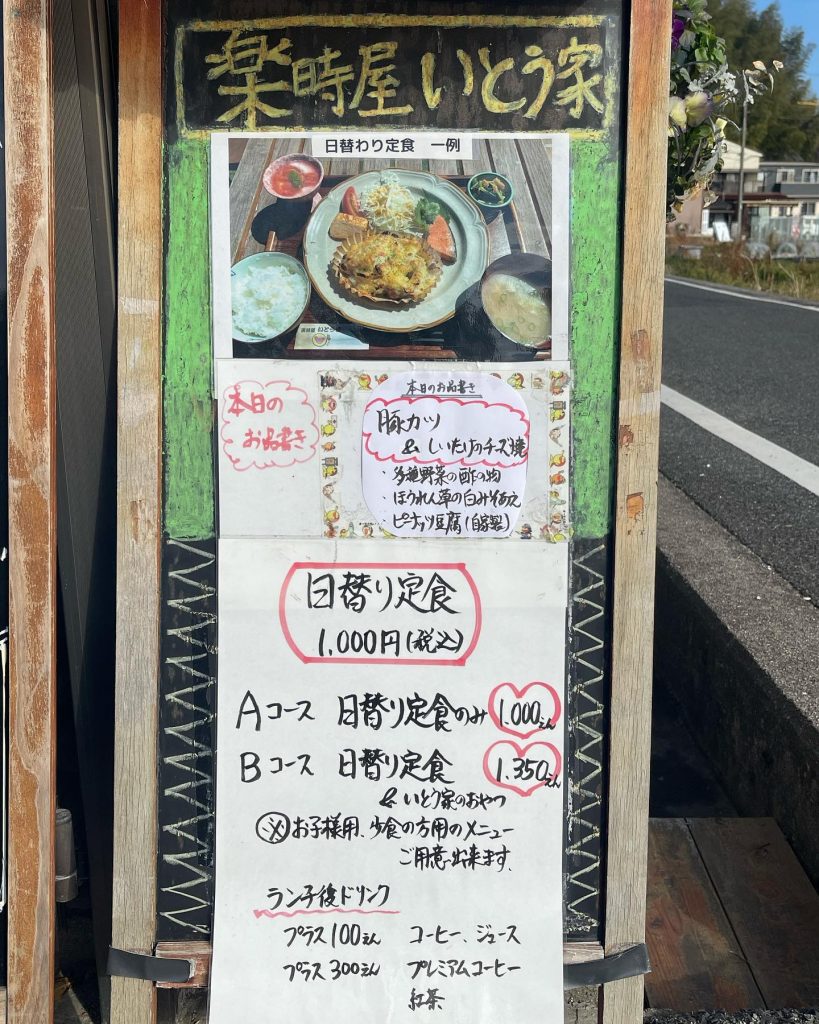 楽時屋 いとう家
日替わり定食 一例
本日の
お品書き
本日のお品書き
豚カツ
& しいたけのチーズ焼
・多種野菜の酢の物
・ほうれん草の白みそあえ
・ピーナッツ豆腐(自家製)
日替り定食
1,000円(税込)
Aコース 日替り定食のみ 1.000えん
Bコース 日替り定食 1.350えん
& いとう家のおやつ
※お子様用、少食の方用のメニュー
ご用意出来ます。
ランチ後ドリンク
プラス100えん コーヒー、ジュース
プラス300えん プレミアムコーヒー
紅茶